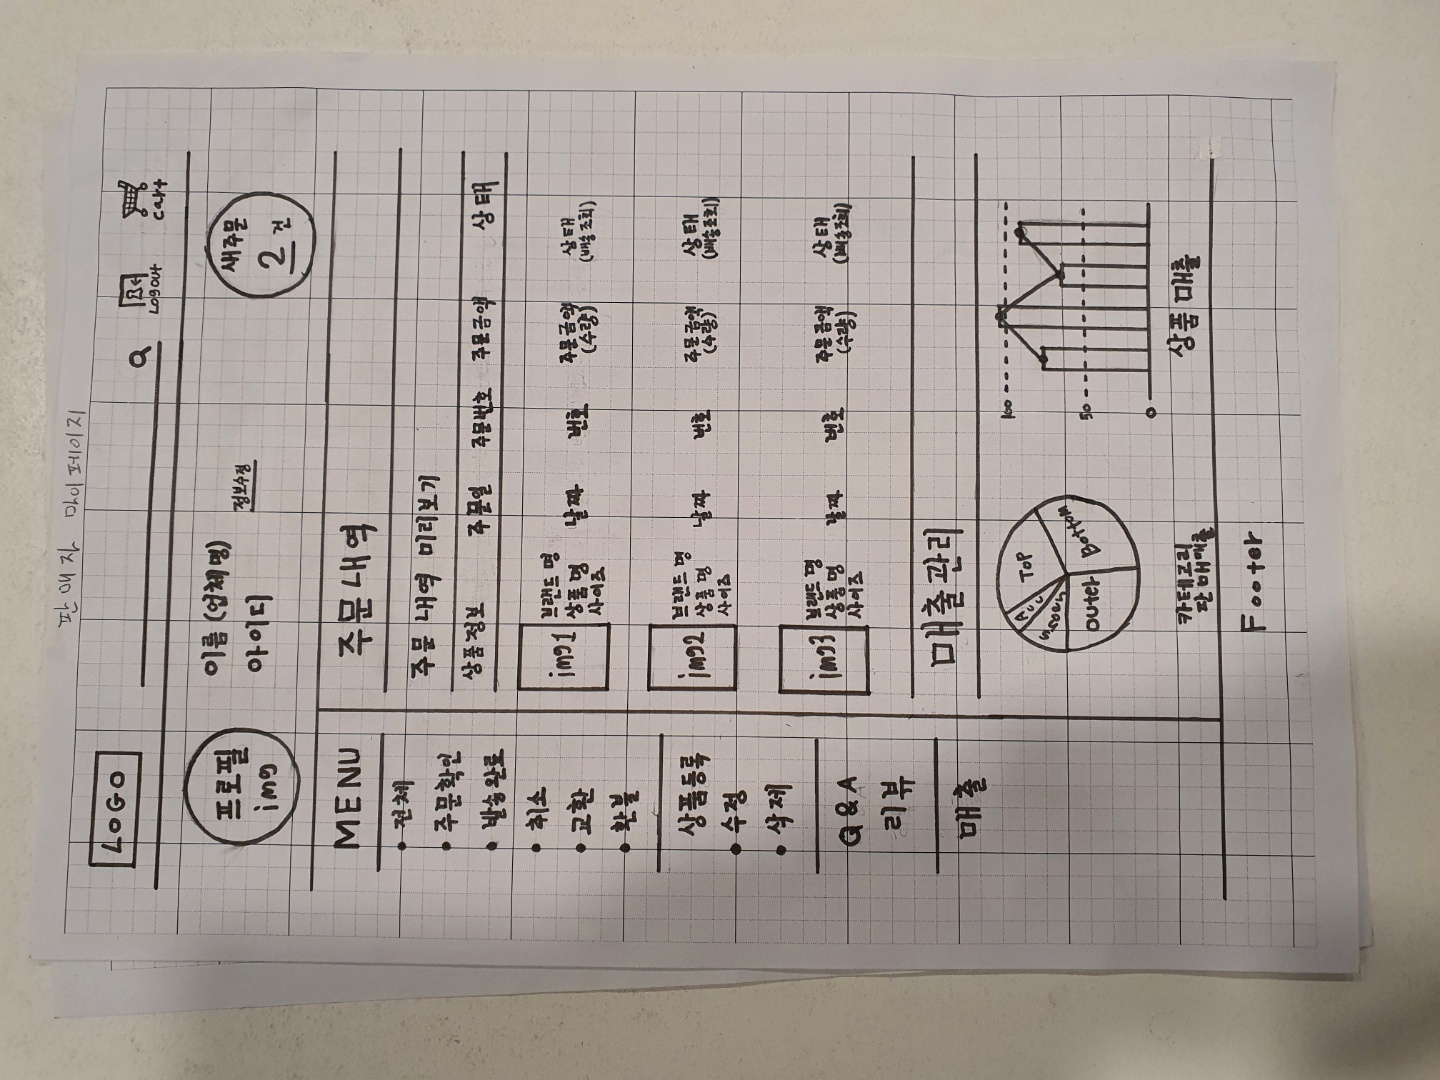 판매자 마이페이지
LOGO
Logout
cart
프로필
img
이름 (업체명)
아이디
정보수정
새주문
2 건
MENU
전체
주문확인
발송완료
취소
교환
환불
상품등록
수정
삭제
Q & A
리뷰
매출
주문내역
주문 내역 미리보기
상품정보 주문일 주문번호 주문금액 상태
img1
브랜드 명
상품 명
사이즈
날짜
번호
주문금액
(수량)
상태
(배송조회)
img2
브랜드 명
상품 명
사이즈
날짜
번호
주문금액
(수량)
상태
(배송조회)
img3
브랜드 명
상품 명
사이즈
날짜
번호
주문금액
(수량)
상태
(배송조회)
매출관리
Acc
Top
Shoes
Outer
Bottom
카테고리
판매매출
100
50
0
상품 매출
Footer